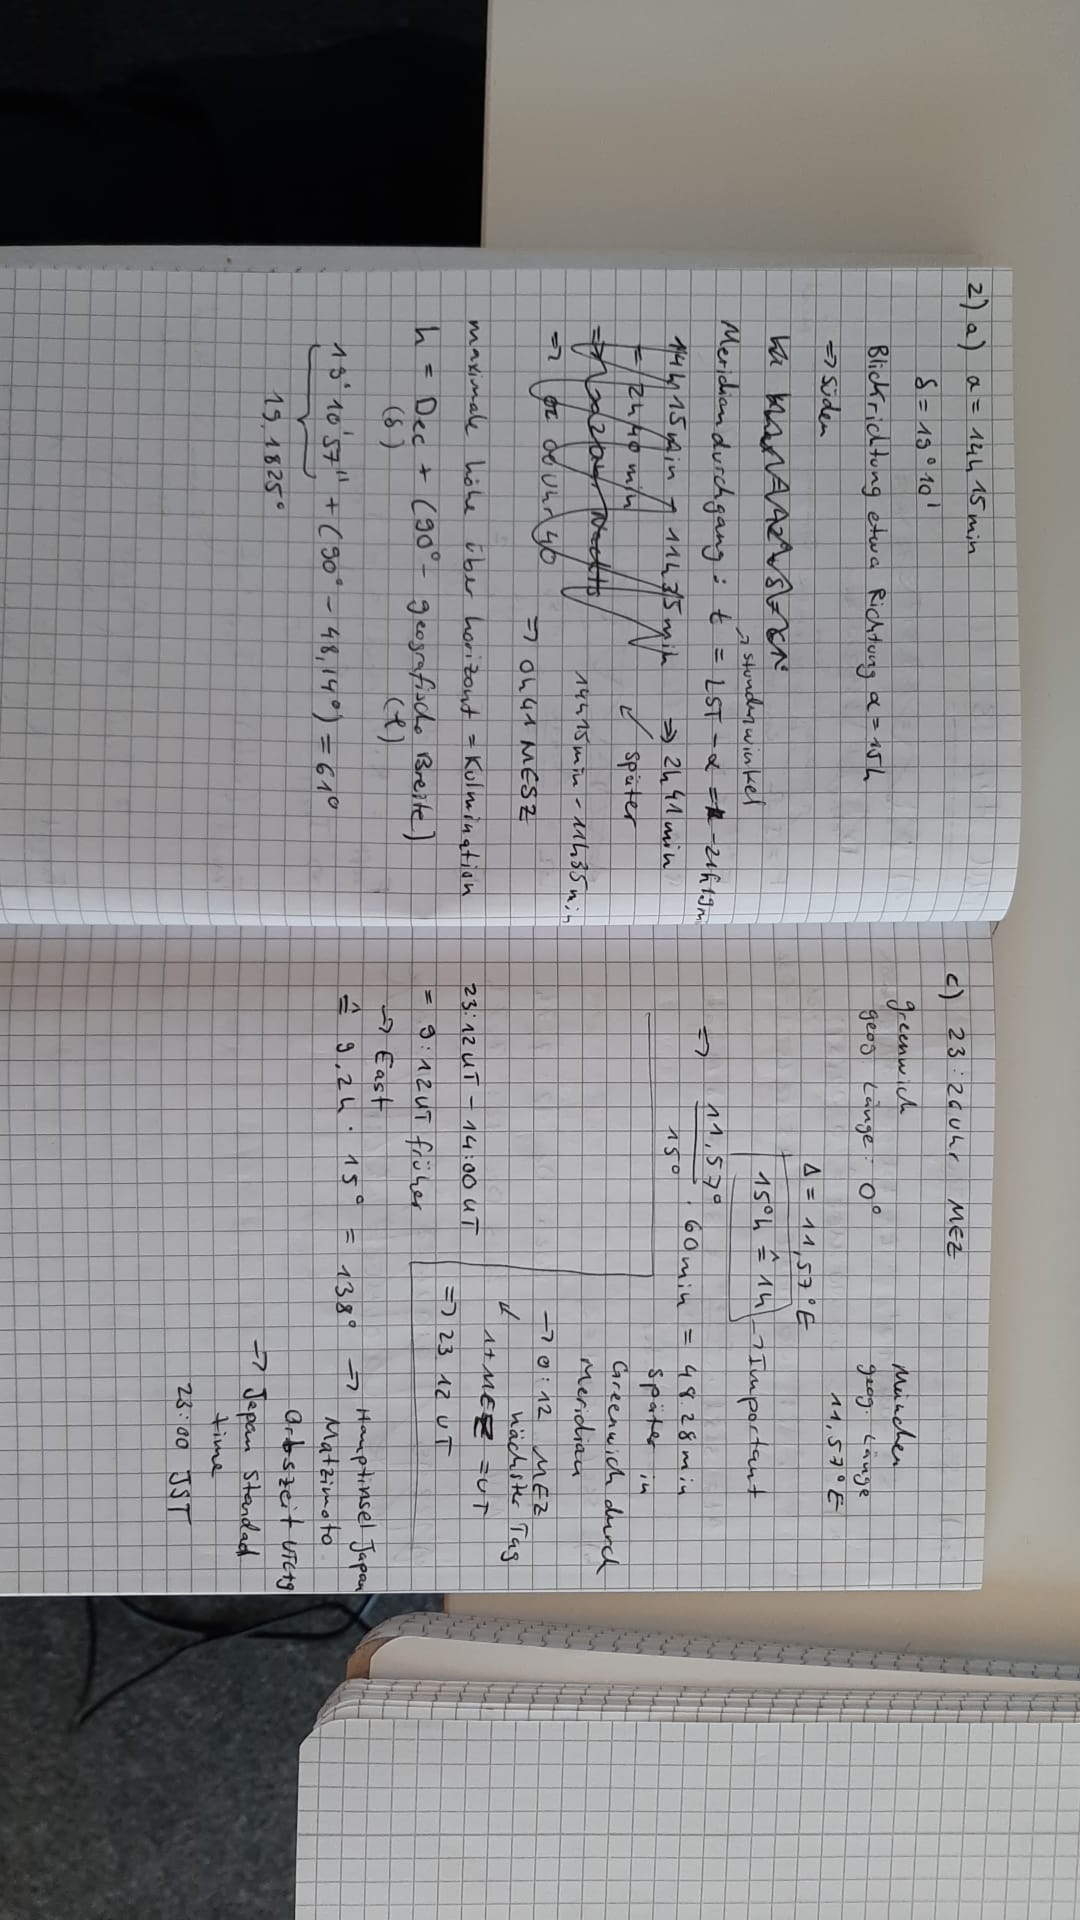 2) a) α = 14h 15min
δ = 19° 10'
Blickrichtung etwa Richtung α = 15h
=> Süden
→ stundenwinkel
Meridiandurchgang : t = LST - α = -21h19m
14h 15min - 11h 35min => 2h 41min
= 2h 40 min ↙ später
14h15min - 11h35min
=> 00 Uhr 40
=> 0h41 MESZ
maximale höhe über horizont = Kulmination
h = Dec + (90° - geografische Breite)
(δ) (φ)
19° 10' 57'' + (90° - 48,14°) = 61°
19.1825°
c) 23:26 Uhr MEZ
greenwich
geog Länge: 0°
München
geog. Länge
11,57° E
Δ = 11,57° E
15°h ≙ 1h → Important
=> 11,57° / 15° · 60min = 48.28min
später in
Greenwich durch
Meridian
→ 0:12 MEZ
↙ nächster Tag
1+MEZ = UT
=> 23 12 UT
23:12 UT - 14:00 UT
= 9:12 UT früher
→ East
≙ 9.2h · 15° = 138° → Hauptinsel Japan
Matzimoto
Ortszeit UTC+9
→ Japan Standad
time
23:00 JST